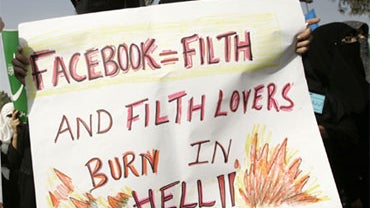 FACEBOOK=FILTH
AND FILTH LOVERS
BURN IN
HELL!!